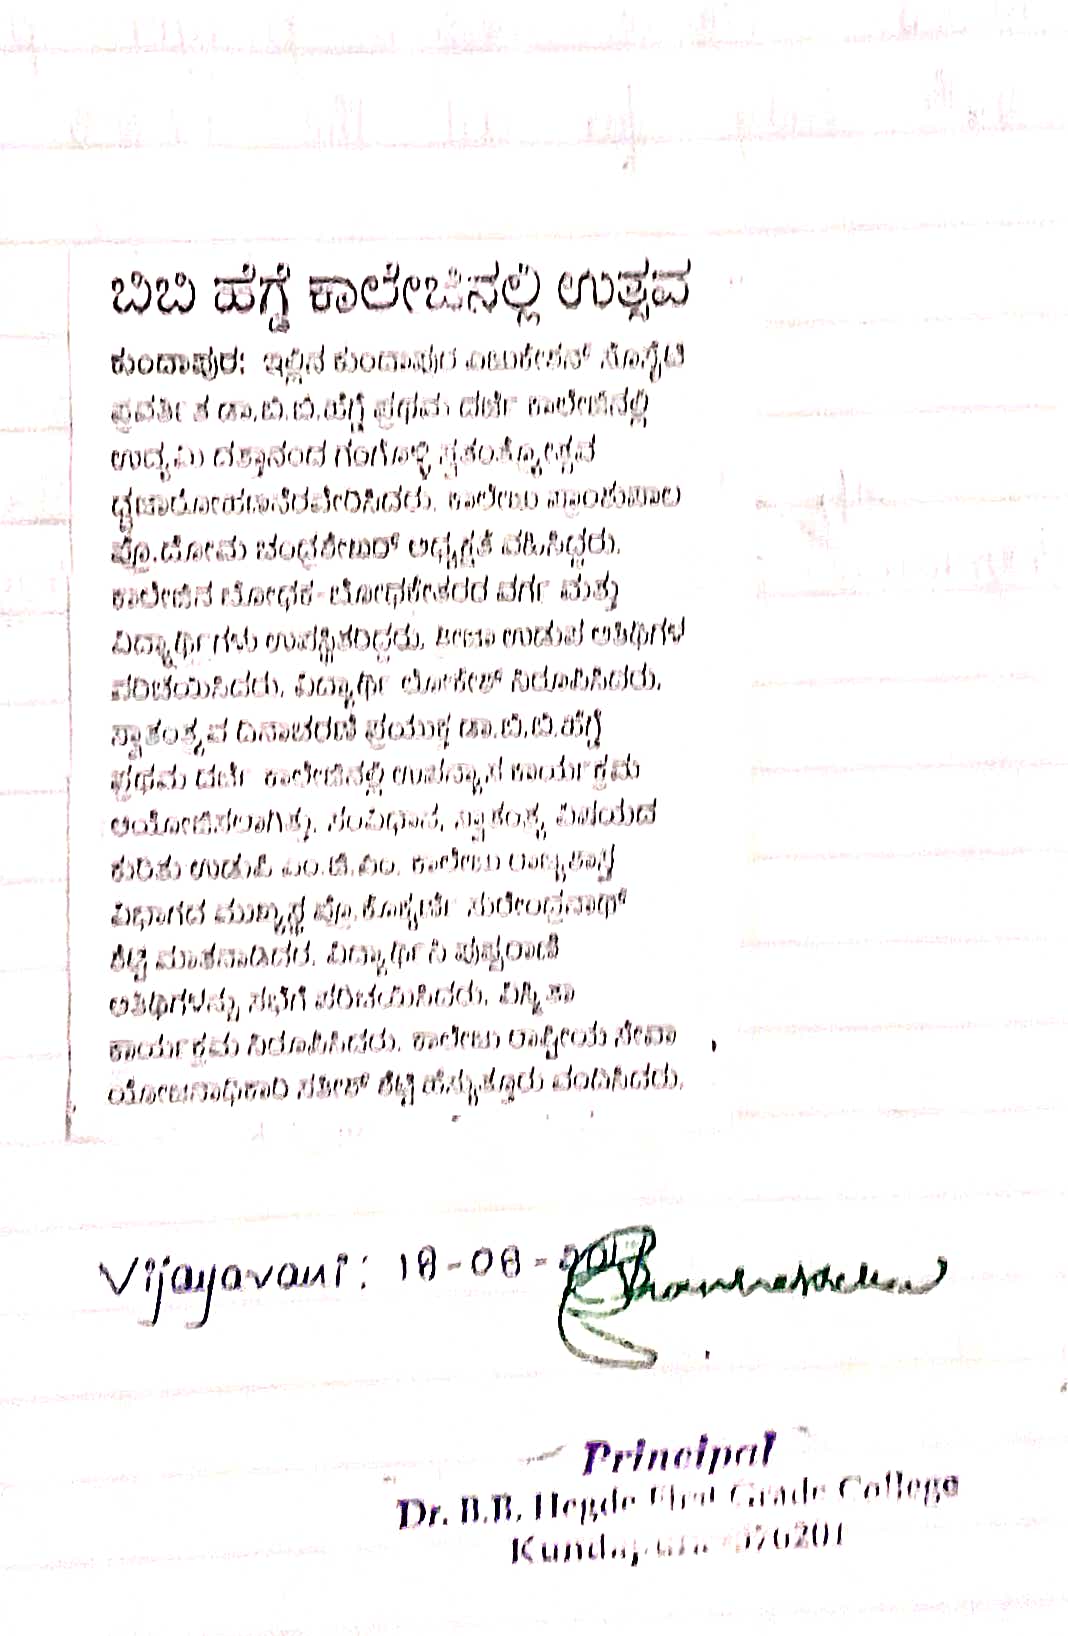 ಬಿಬಿ ಹೆಗ್ಡೆ ಕಾಲೇಜಿನಲ್ಲಿ ಉತ್ಸವ
ಕುಂದಾಪುರ: ಇಲ್ಲಿನ ಕುಂದಾಪುರ ಎಜುಕೇಶನ್ ಸೊಸೈಟಿ
ಪ್ರವರ್ತಿತ ಡಾ.ಬಿ.ಬಿ.ಹೆಗ್ಡೆ ಪ್ರಥಮ ದರ್ಜೆ ಕಾಲೇಜಿನಲ್ಲಿ
ಉದ್ಯಮಿ ದತ್ತಾನಂದ ಗಂಗೊಳ್ಳಿ
ಧ್ವಜಾರೋಹಣ ನೆರವೇರಿಸಿದರು. ಕಾಲೇಜು ಪ್ರಾಂಶುಪಾಲ
ಪ್ರೊ.ದೋಮ ಚಂದ್ರಶೇಖರ್ ಅಧ್ಯಕ್ಷತೆ ವಹಿಸಿದ್ದರು.
ಕಾಲೇಜಿನ ಬೋಧಕ-ಬೋಧಕೇತರರ ವರ್ಗ ಮತ್ತು
ವಿದ್ಯಾರ್ಥಿಗಳು ಉಪಸ್ಥಿತರಿದ್ದರು. ಅತಿಥಿಗಳ
ಪರಿಚಯಿಸಿದರು. ವಿದ್ಯಾರ್ಥಿ ಲೋಕೇಶ್ ನಿರೂಪಿಸಿದರು.
ಸ್ವಾತಂತ್ರ್ಯ ದಿನಾಚರಣೆ ಪ್ರಯುಕ್ತ ಡಾ.ಬಿ.ಬಿ.ಹೆಗ್ಡೆ
ಪ್ರಥಮ ದರ್ಜೆ ಕಾಲೇಜಿನಲ್ಲಿ ಉಪನ್ಯಾಸ ಕಾರ್ಯಕ್ರಮ
ಆಯೋಜಿಸಲಾಗಿತ್ತು. ಸಂವಿಧಾನ, ಸ್ವಾತಂತ್ರ್ಯ ವಿಷಯದ
ಕುರಿತು ಉಡುಪಿ ಎಂ.ಜಿ.ಎಂ. ಕಾಲೇಜು ರಾಜ್ಯಶಾಸ್ತ್ರ
ವಿಭಾಗದ ಮುಖ್ಯಸ್ಥ ಸುರೇಂದ್ರನಾಥ್
ಶೆಟ್ಟಿ ಮಾತನಾಡಿದರು. ವಿದ್ಯಾರ್ಥಿನಿ
ಅತಿಥಿಗಳನ್ನು ಸಭೆಗೆ ಪರಿಚಯಿಸಿದರು.
ಕಾರ್ಯಕ್ರಮ ನಿರೂಪಿಸಿದರು. ಕಾಲೇಜು ರಾಷ್ಟ್ರೀಯ ಸೇವಾ
ಯೋಜನಾಧಿಕಾರಿ ಸತೀಶ್ ಶೆಟ್ಟಿ ಹೆಸ್ಕತ್ತೂರು ವಂದಿಸಿದರು.
Vijayavani: 18-08-
Principal
Dr. B.B. Hegde First Grade College
Kundapura 576201